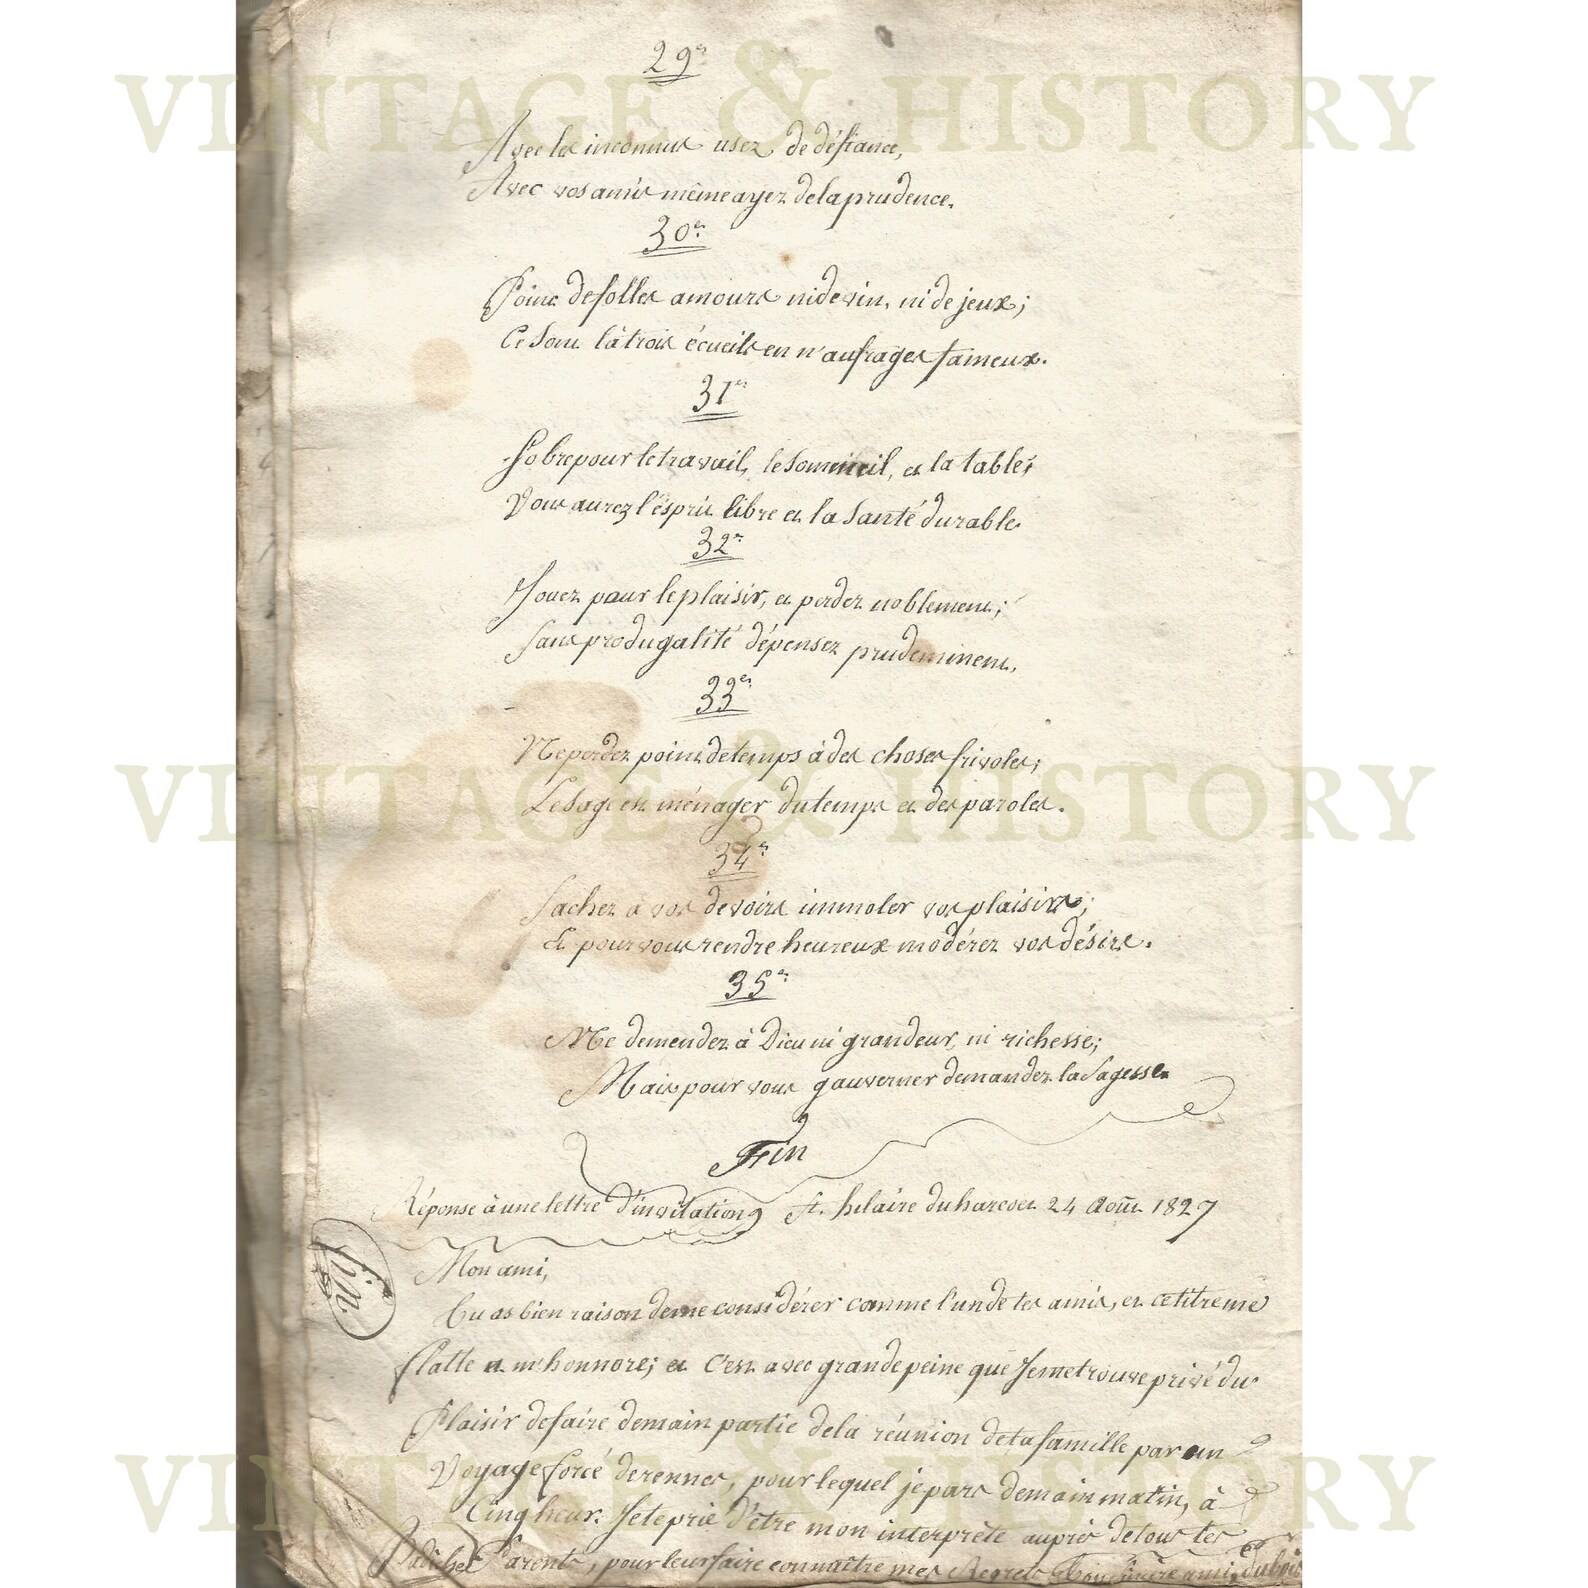 VINTAGE & HISTORY
29e
Avec les inconnus usez de défiance,
Avec vos amis même ayez de la prudence.
30e
Point de folles amours ni de vin, ni de jeux;
Ce sont là trois écueils en n'aufrages fameux.
31e
Sobre pour le travail, le sommeil, et la table;
Vous aurez l'ésprit libre et la santé durable
32e
Jouez pour le plaisir, et perdez noblement;
Sans produgalité dépensez prudemment.
33e
Ne perdez point de temps à des choses frivoles;
Le sage est ménager du temps et des paroles.
VINTAGE & HISTORY
34e
Sachez à vos devoirs immoler vos plaisirs;
Et pour vous rendre heureux modérez vos désirs.
35e
Ne demendez à Dieu ni grandeur, ni richesse;
Mais pour vous gauverner demandez la sagesse.
Fin
Réponse à une lettre d'invitation St. hilaire du harcoet 24 Août 1827
fin.
Mon ami,
Tu as bien raison de me considérer comme l'un de tes amis, et ce titre me
flatte et m'honnore; et c'est avec grande peine que Je me trouve privé du
Plaisir de faire demain partie de la réunion de ta famille par un
Voyage forcé de rennes, pour lequel je pars demain matin, à
Cinq heur. Je te prie d'être mon interprète auprès de tous tes
Parents, pour leur faire connaître mes Regrets Ton sincère ami. dubois
VINTAGE & HISTORY